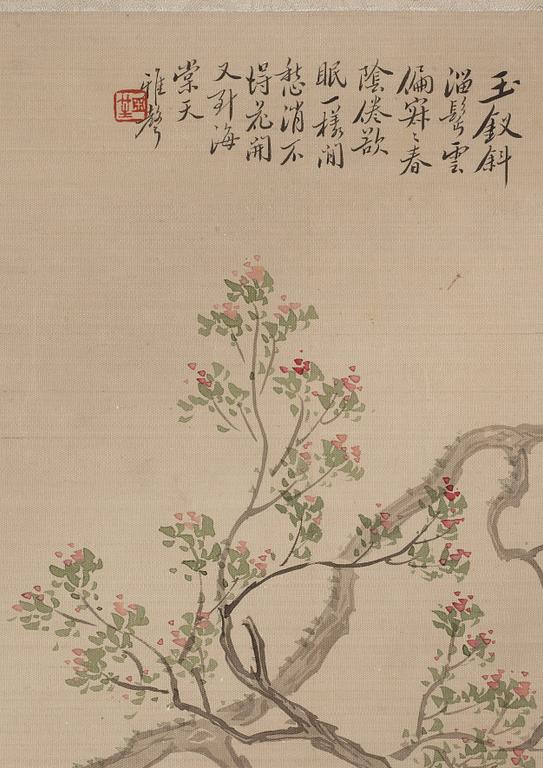 玉釵斜
溜鬢雲
偏寂〻春
陰倦欲
眠一樣閒
愁消不
得花開
又到海
棠天
雅聲